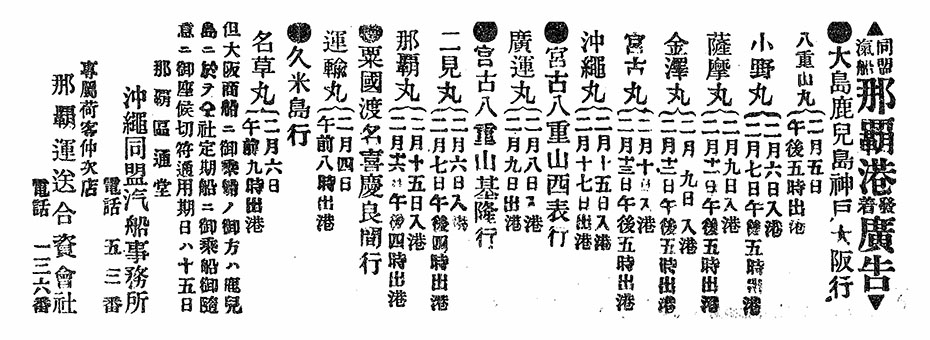 ▲同盟汽船那覇港発着廣告▼
●大島鹿兒島神戸大阪行
八重山丸{二月五日
午後五時出港
小野丸{二月六日入港
二月七日午後五時出港
薩摩丸{二月九日入港
二月十二日午後五時出港
金澤丸{二月九日入港
二月十三日午後五時出港
宮古丸{二月十日入港
二月十三日午後五時出港
沖繩丸{二月十五日入港
二月十七日出港
●宮古八重山西表行
廣運丸{二月八日入港
二月九日出港
●宮古八重山基隆行
二見丸{二月六日入港
二月七日午後四時出港
那覇丸{二月十五日入港
二月十六日午後四時出港
●粟國渡名喜慶良間行
運輸丸{二月四日
午前八時出港
●久米島行
名草丸{二月六日
午前九時出港
但大阪商船ニ御乘船ノ御方ハ鹿兒
島ニ於テ仝社定期船ニ御乘船御隨
意ニ御座候切符通用期日ハ十五日
那覇區通堂
沖繩同盟汽船事務所
電話 五二番
專屬荷客仲次店
那覇運送合資會社
電話 一三六番